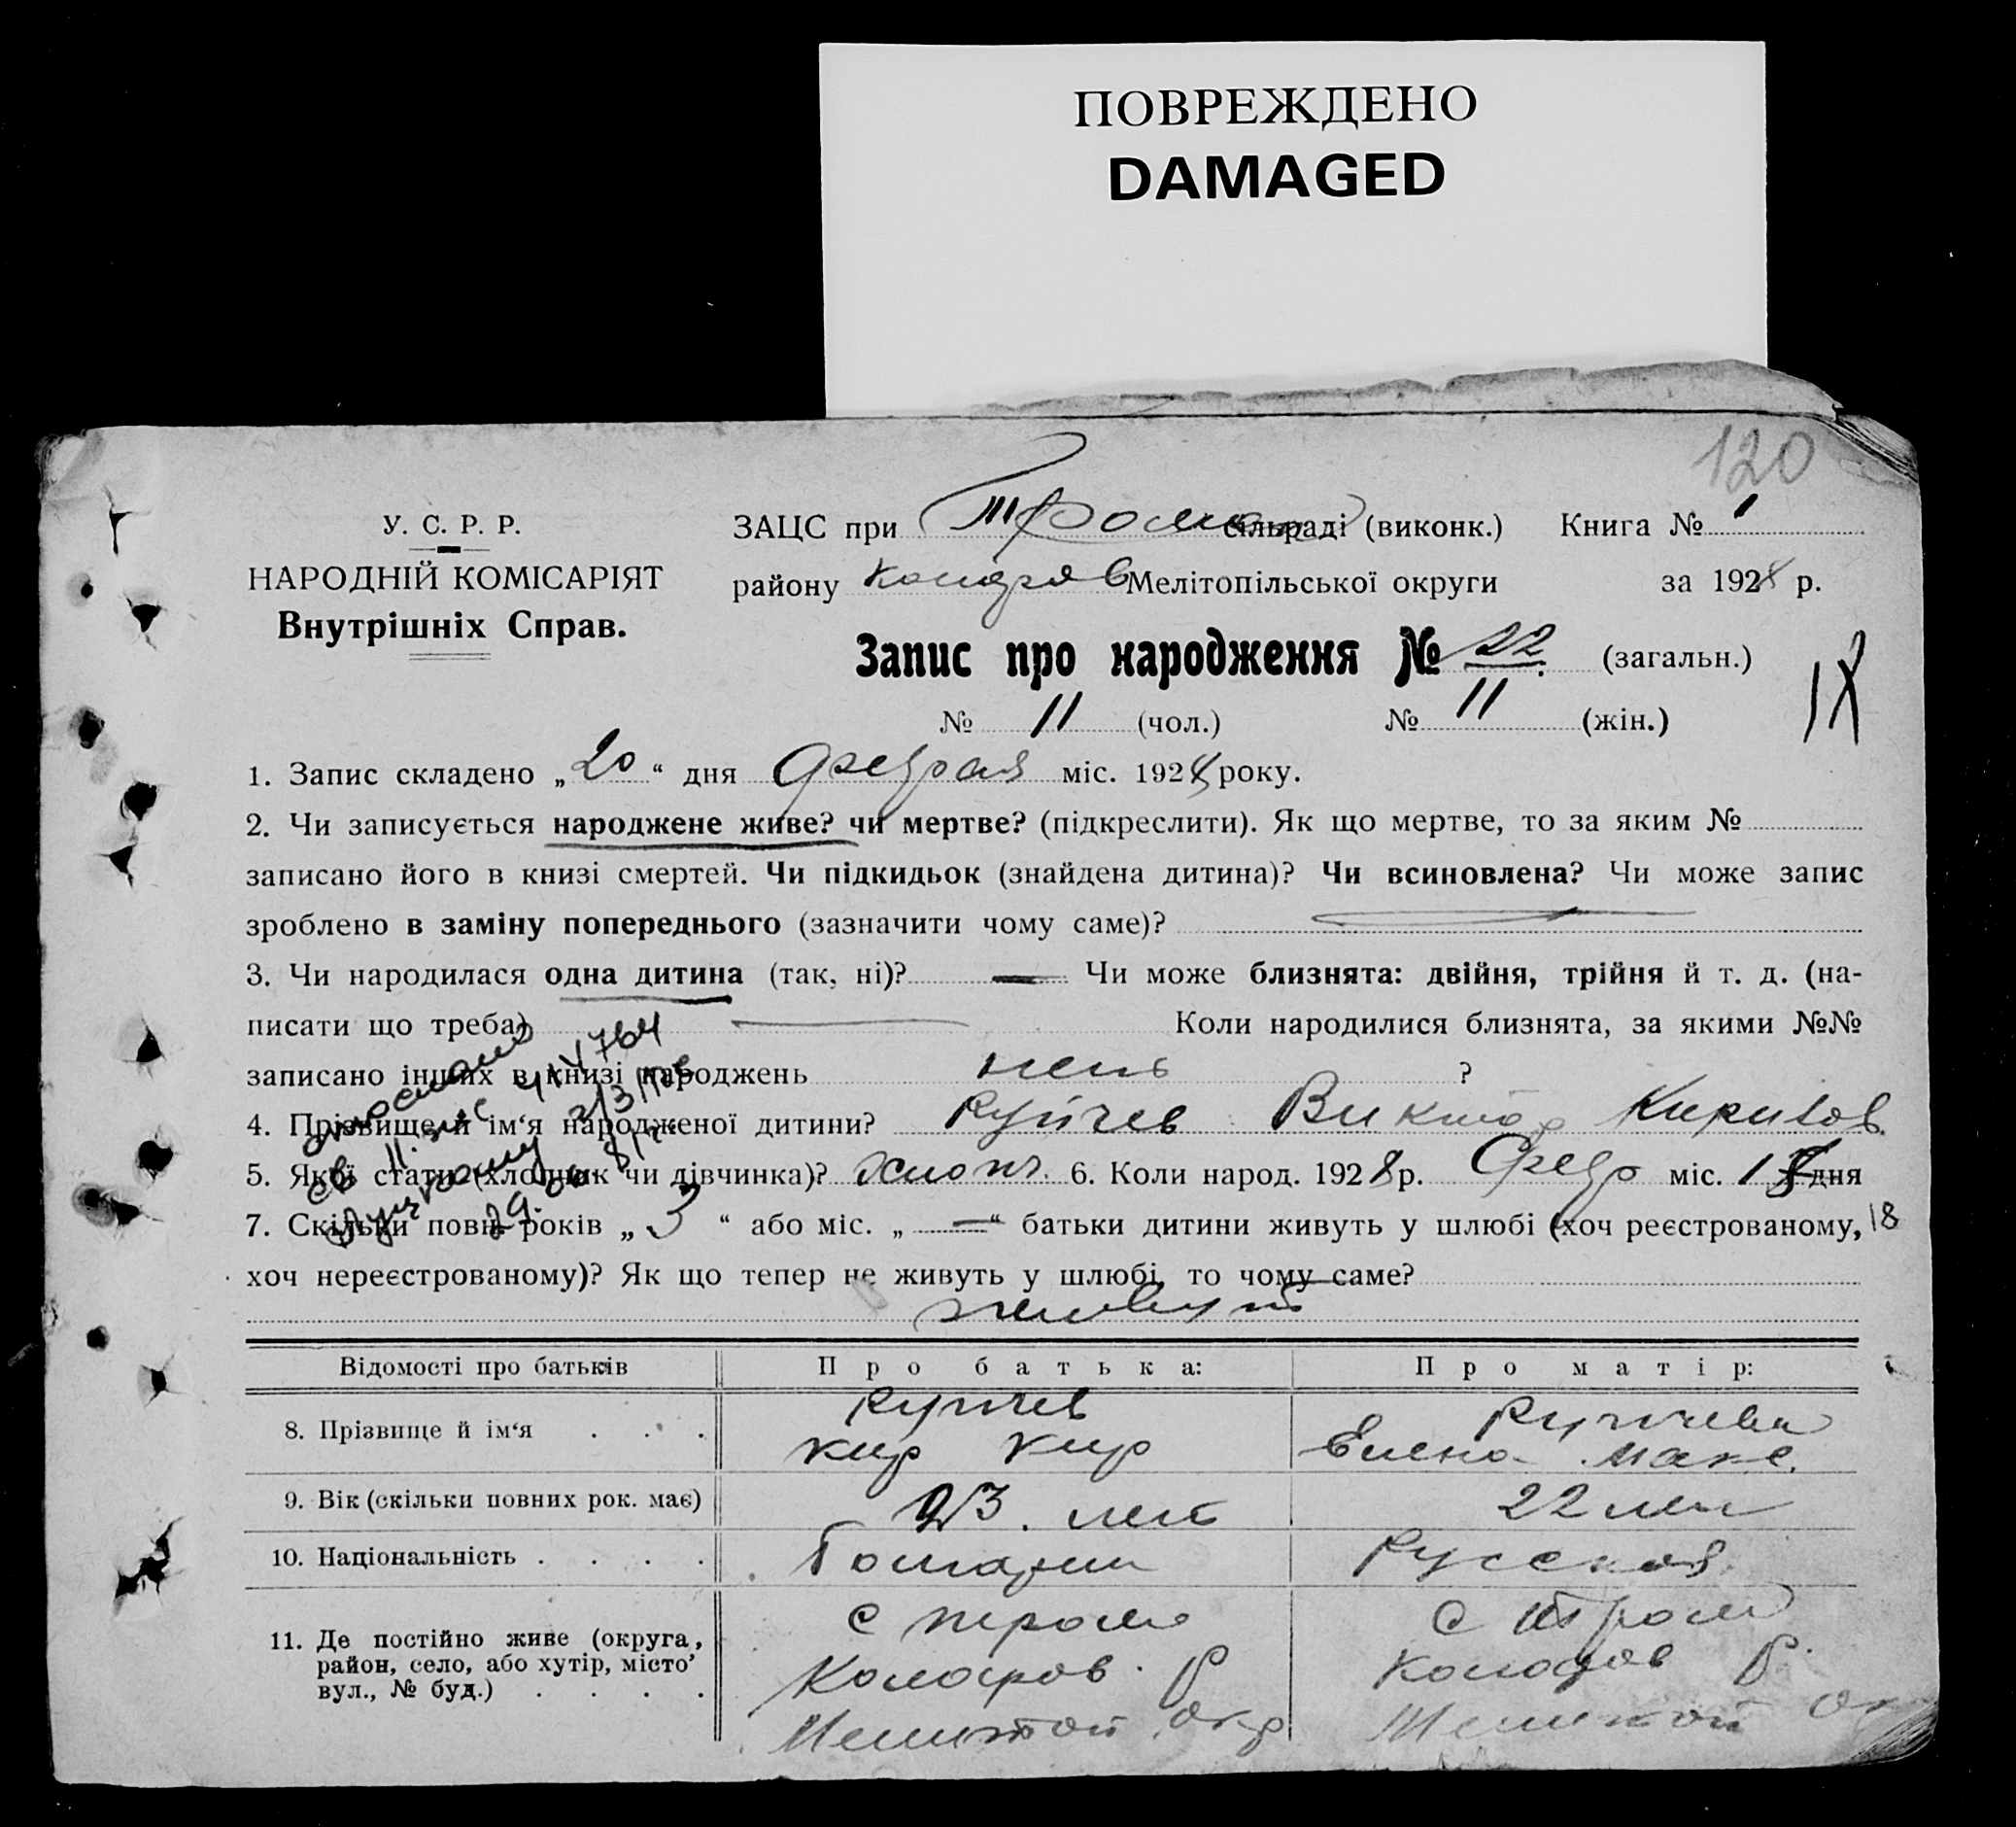 ПОВРЕЖДЕНО
DAMAGED
120
У. С. Р. Р.
НАРОДНІЙ КОМІСАРІЯТ
Внутрішніх Справ.
ЗАЦС при Тром сільраді (виконк.) Книга № 1
району Мелітопільської округи за 1928 р.
Запис про народження № 22 (загальн.)
№ 11 (чол.) № 11 (жін.)
1. Запис складено „20“ дня Февраля міс. 1928 року.
2. Чи записується народжене живе? чи мертве? (підкреслити). Як що мертве, то за яким №
записано його в книзі смертей. Чи підкидьок (знайдена дитина)? Чи всиновлена? Чи може запис
зроблено в заміну попереднього (зазначити чому саме)?
3. Чи народилася одна дитина (так, ні)? — Чи може близнята: двійня, трійня й т. д. (на-
писати що треба) — Коли народилися близнята, за якими №№
записано інших в книзі народжень ?
4. Прізвище й ім‘я народженої дитини? Виктор Кирилов
5. Якої стати (хлопчик чи дівчинка)? хлопч. 6. Коли народ. 1928 р. Февр міс. 18 дня
7. Скільки повн. років „3“ або міс. „—“ батьки дитини живуть у шлюбі (хоч реєстрованому, 18
хоч нереєстрованому)? Як що тепер не живуть у шлюбі, то чому саме?
живут
Відомості про батьків Про батька: Про матір:
8. Прізвище й ім‘я . . .
Кир Кир Елена Макс.
9. Вік (скільки повних рок. має) 23. лет 22 лет
10. Національність . . . . Болгарин Русская
11. Де постійно живе (округа, район, село, або хутір, місто, вул., № буд.) . . . .
с Тром С Тром
Коларов. р Коларов р.
Мелитоп окр Мелитоп ок